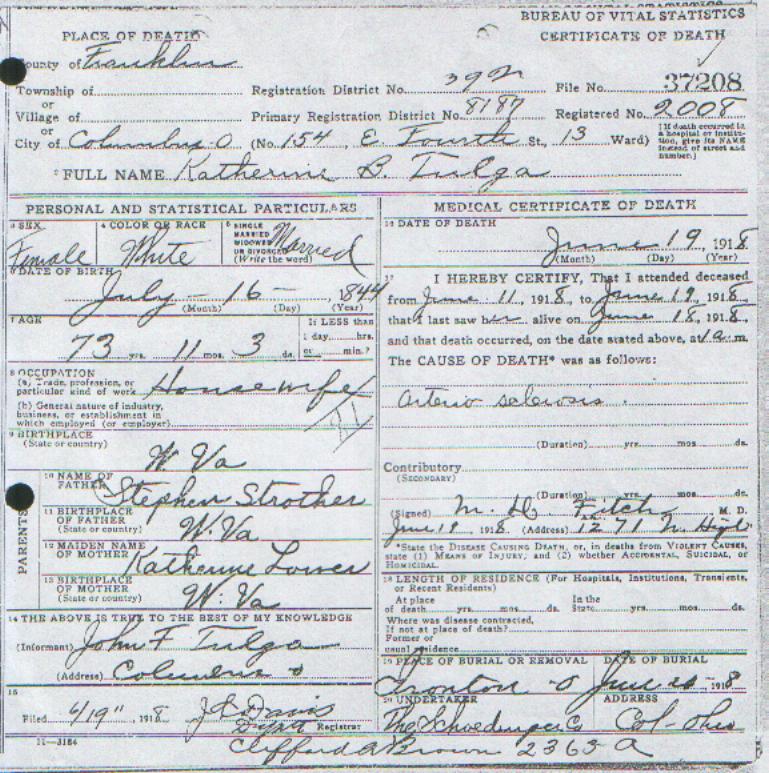 BUREAU OF VITAL STATISTICS
PLACE OF DEATH
CERTIFICATE OF DEATH
County of Franklin
Township of
Registration District No. 392
File No. 37208
or
Village of
Primary Registration District No. 8187
Registered No. 2008
or
City of Columbus O (No. 154, E. Fourth St., 13 Ward)
[If death occurred in a hospital or institution, give its NAME instead of street and number.]
2 FULL NAME Katherine B. Tulga
PERSONAL AND STATISTICAL PARTICULARS
3 SEX
Female
4 COLOR OR RACE
White
5 SINGLE
MARRIED
WIDOWED
OR DIVORCED
(Write the word)
Married
6 DATE OF BIRTH
July - 16 - , 1844
(Month) (Day) (Year)
7 AGE
73 yrs. 11 mos. 3 ds.
If LESS than
1 day, hrs.
or min.?
8 OCCUPATION
(a) Trade, profession, or
particular kind of work Housewife
(b) General nature of industry,
business, or establishment in
which employed (or employer)
9 BIRTHPLACE
(State or country)
W Va
PARENTS
10 NAME OF
FATHER Stephen Strother
11 BIRTHPLACE
OF FATHER
(State or country) W. Va
12 MAIDEN NAME
OF MOTHER Katherine Lower
13 BIRTHPLACE
OF MOTHER
(State or country) W. Va
14 THE ABOVE IS TRUE TO THE BEST OF MY KNOWLEDGE
(Informant) John F Tulga
(Address) Columbus O
15
Filed 6/19", 1918 J C Davis
Dept Registrar
11-3184
MEDICAL CERTIFICATE OF DEATH
16 DATE OF DEATH
June 19, 1918
(Month) (Day) (Year)
17 I HEREBY CERTIFY, That I attended deceased
from June 11, 1918, to June 19, 1918,
that I last saw her alive on June 18, 1918,
and that death occurred, on the date stated above, at 1 a m.
The CAUSE OF DEATH* was as follows:
Arterio sclerosis.
(Duration) yrs. mos. ds.
Contributory
(SECONDARY)
(Duration) yrs. mos. ds.
(Signed) M. H. Fitch M. D.
June 19 1918 (Address) 1271 N. High
*State the DISEASE CAUSING DEATH, or, in deaths from VIOLENT CAUSES,
state (1) MEANS OF INJURY; and (2) whether ACCIDENTAL, SUICIDAL, or
HOMICIDAL.
18 LENGTH OF RESIDENCE (For Hospitals, Institutions, Transients,
or Recent Residents)
At place In the
of death yrs. mos. ds. State yrs. mos. ds.
Where was disease contracted,
if not at place of death?
Former or
usual residence
19 PLACE OF BURIAL OR REMOVAL
Ironton O
DATE OF BURIAL
June 20 1918
20 UNDERTAKER
The Schoedinger Co
ADDRESS
Col- Ohio
Clifford A Brown 2363 a